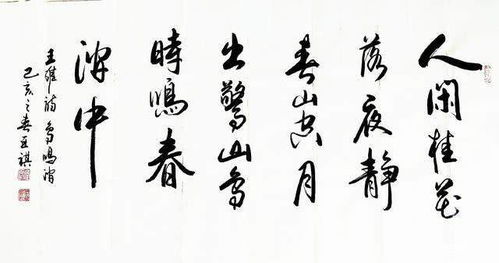 人闲桂花
落夜静
春山空月
出惊山鸟
时鸣春
涧中
王维诗鸟鸣涧
己亥之春